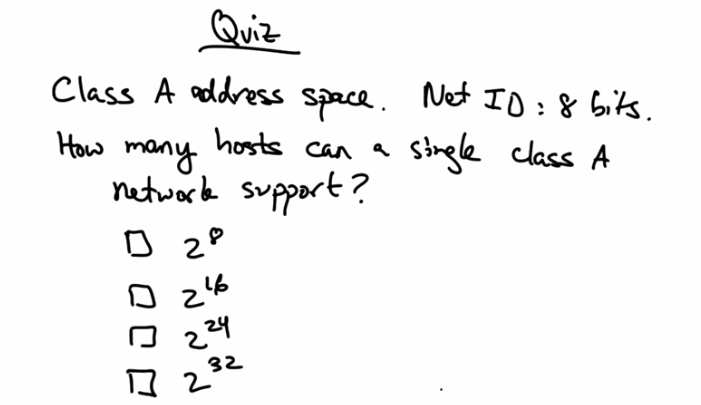 Quiz
Class A address space. Net ID: 8 bits.
How many hosts can a single class A
network support?
□ 2^8
□ 2^16
□ 2^24
□ 2^32